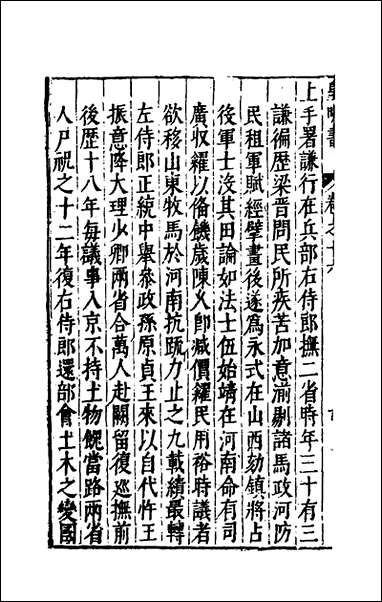 上手署謙行在兵部右侍郎撫二省時年三十有三
謙徧歷梁晉問民所疾苦加意湔剔諸馬政河防
民租軍賦經擘畫後遂為永式在山西劾鎮將占
後軍士沒其田論如法士伍始靖在河南命有司
廣収糴以俻饑歲陳乂即減價糶民用裕時議者
欲移山東牧馬於河南抗䟽力止之九載績最轉
左侍郎正統中舉參政孫原貞王來以自代忤王
振意降大理少卿兩省合萬人赴闕留復巡撫前
後歷十八年每議事入京不持土物餽當路兩省
人尸祝之十二年復右侍郎還部會土木之變國